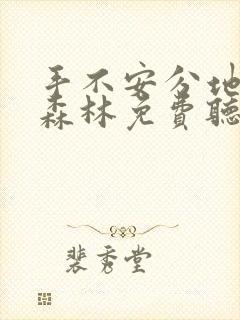 手不安分地
森林免费聽
裴秀堂